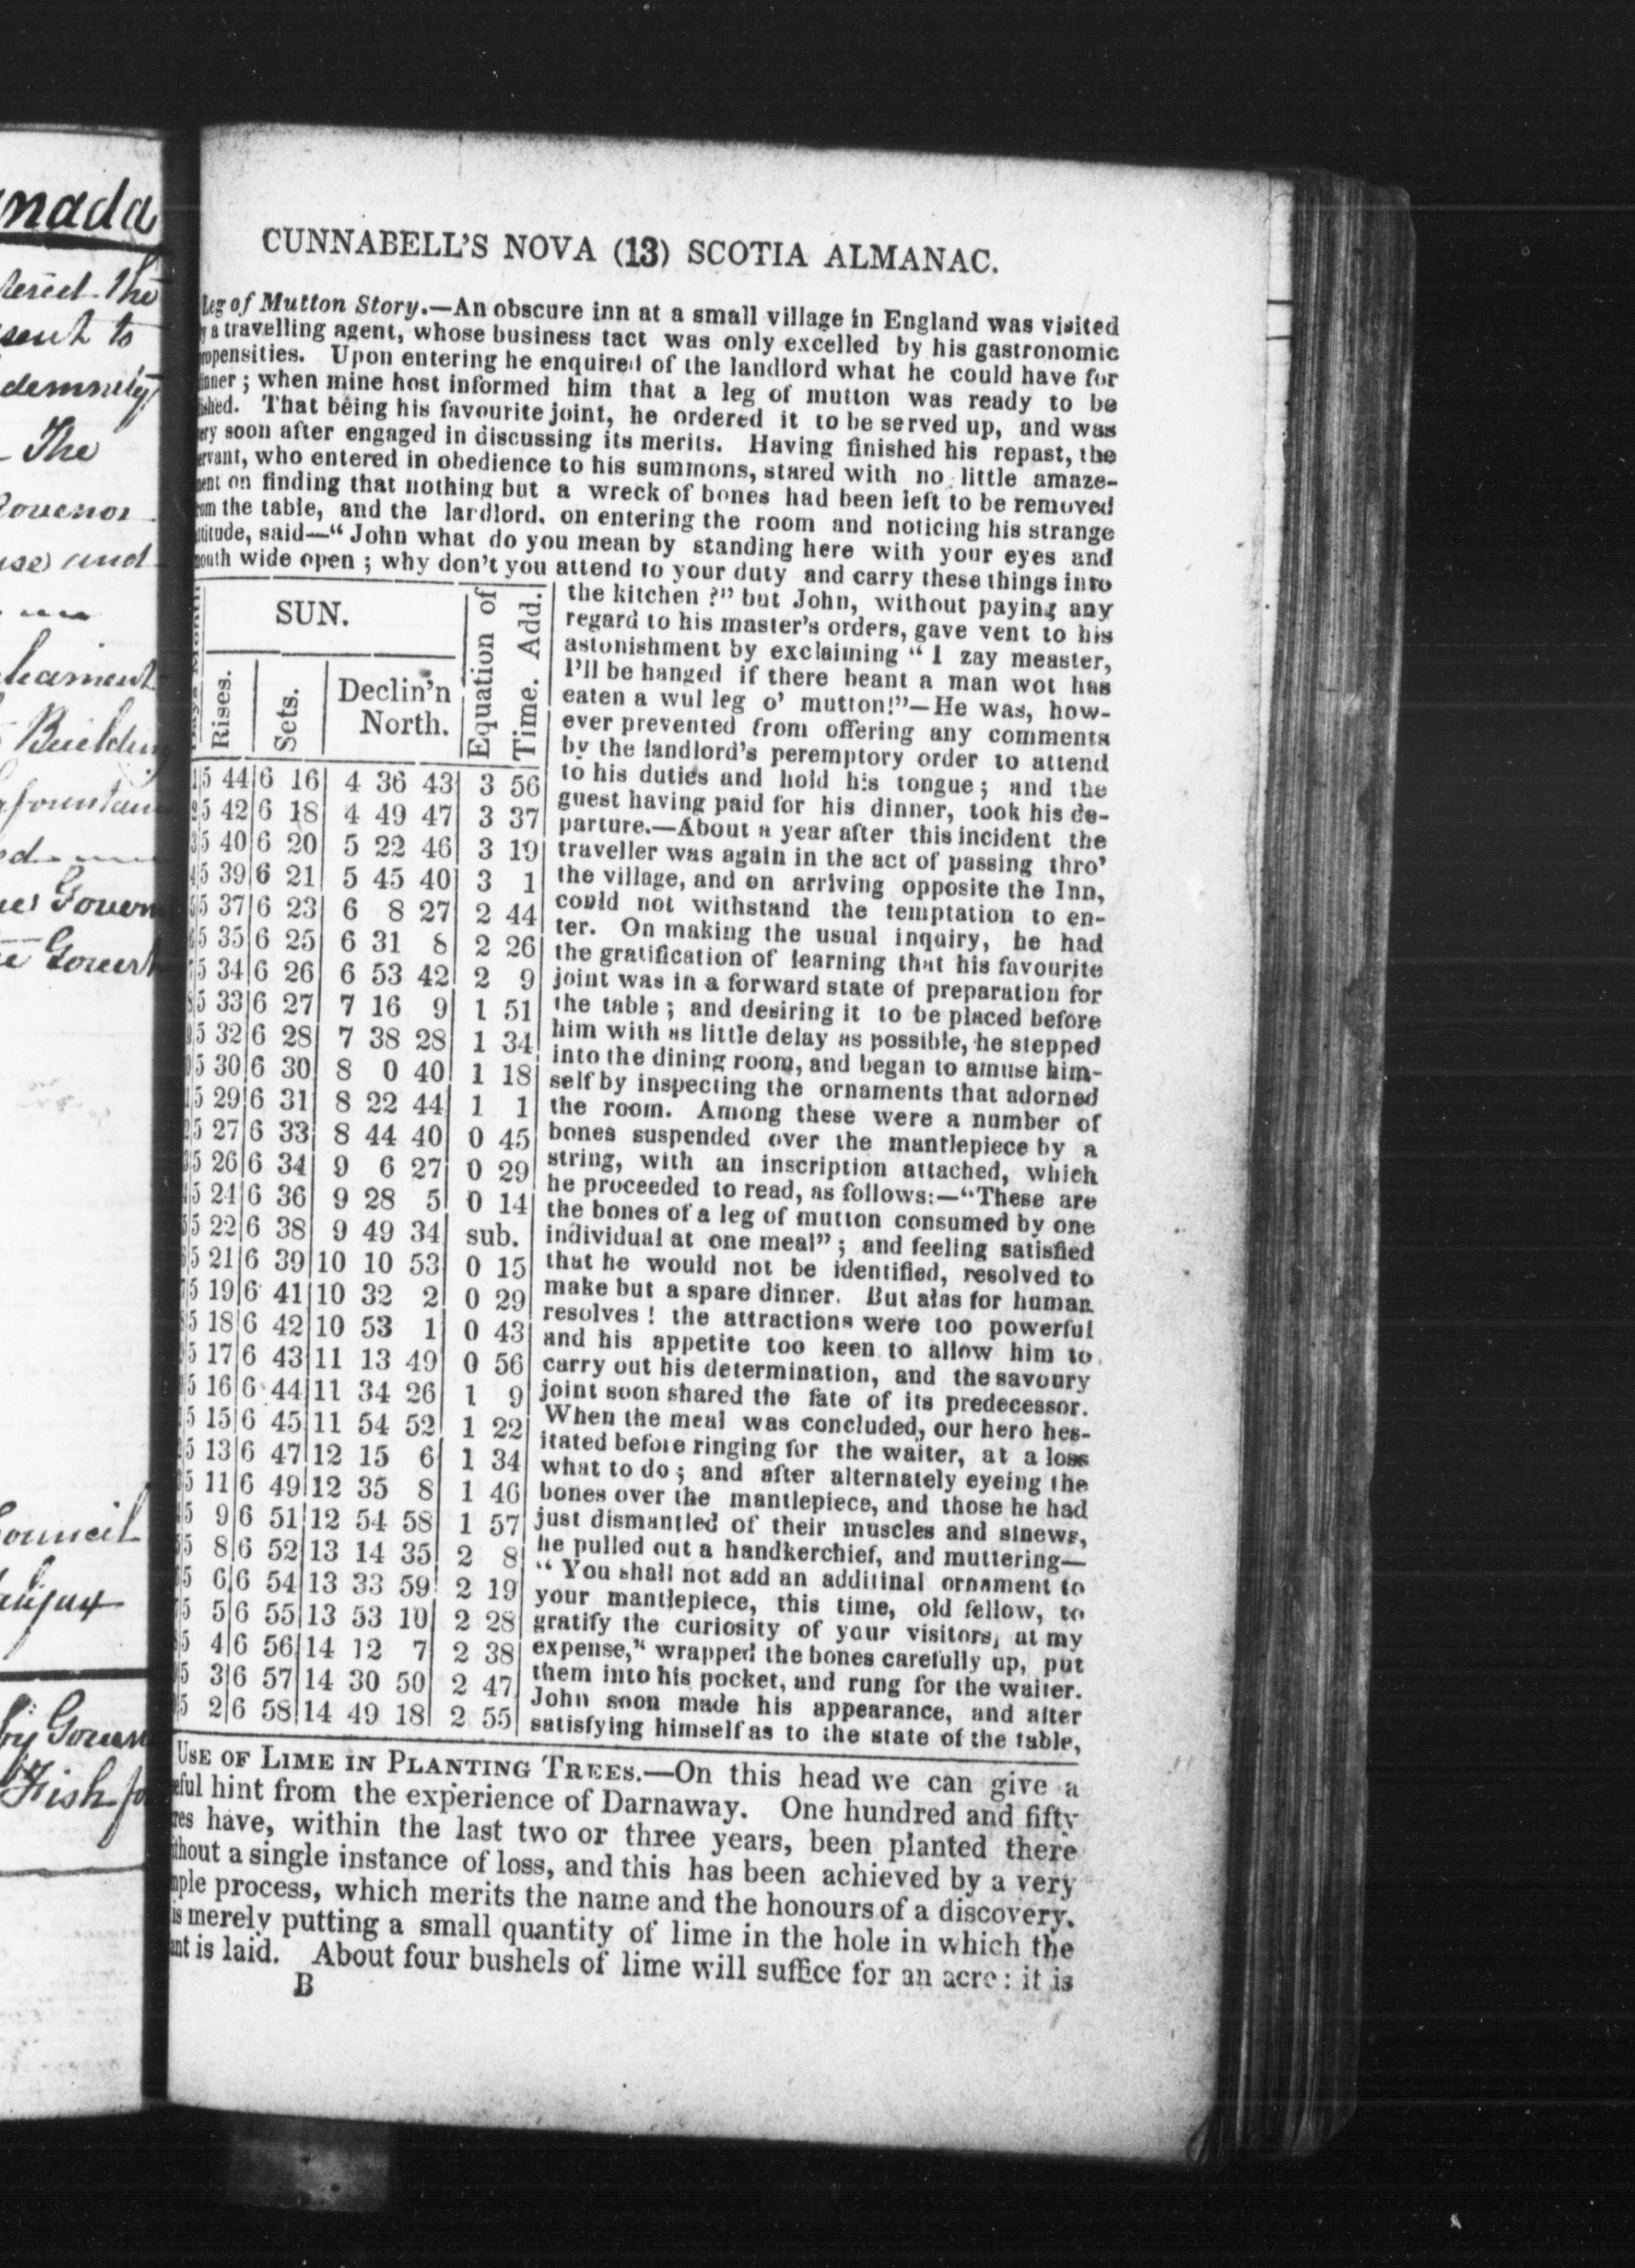 nada
the
sent to
demnity
The
and
Building
Govern
Council
by Govern
Fish
CUNNABELL'S NOVA (13) SCOTIA ALMANAC.
Leg of Mutton Story.—An obscure inn at a small village in England was visited
a travelling agent, whose business tact was only excelled by his gastronomic
ropensities. Upon entering he enquired of the landlord what he could have for
inner; when mine host informed him that a leg of mutton was ready to be
ished. That being his favourite joint, he ordered it to be served up, and was
ery soon after engaged in discussing its merits. Having finished his repast, the
ervant, who entered in obedience to his summons, stared with no little amaze-
ment on finding that nothing but a wreck of bones had been left to be removed
rom the table, and the lardlord. on entering the room and noticing his strange
ttitude, said—“ John what do you mean by standing here with your eyes and
mouth wide open ; why don't you attend to your duty and carry these things into
SUN.
Rises.
Sets.
Declin'n
North.
Equation of
Time. Add.
5 44 6 16 4 36 43 3 56
5 42 6 18 4 49 47 3 37
5 40 6 20 5 22 46 3 19
5 39 6 21 5 45 40 3 1
5 37 6 23 6 8 27 2 44
5 35 6 25 6 31 8 2 26
5 34 6 26 6 53 42 2 9
5 33 6 27 7 16 9 1 51
5 32 6 28 7 38 28 1 34
5 30 6 30 8 0 40 1 18
5 29 6 31 8 22 44 1 1
5 27 6 33 8 44 40 0 45
5 26 6 34 9 6 27 0 29
5 24 6 36 9 28 5 0 14
5 22 6 38 9 49 34 sub.
5 21 6 39 10 10 53 0 15
5 19 6 41 10 32 2 0 29
5 18 6 42 10 53 1 0 43
5 17 6 43 11 13 49 0 56
5 16 6 44 11 34 26 1 9
5 15 6 45 11 54 52 1 22
5 13 6 47 12 15 6 1 34
5 11 6 49 12 35 8 1 46
5 9 6 51 12 54 58 1 57
5 8 6 52 13 14 35 2 8
5 6 6 54 13 33 59 2 19
5 5 6 55 13 53 10 2 28
5 4 6 56 14 12 7 2 38
5 3 6 57 14 30 50 2 47
5 2 6 58 14 49 18 2 55
the kitchen ?” but John, without paying any
regard to his master's orders, gave vent to his
astonishment by exclaiming “ I zay measter,
I'll be hanged if there beant a man wot has
eaten a wul leg o' mutton!”—He was, how-
ever prevented from offering any comments
by the landlord's peremptory order to attend
to his duties and hold his tongue; and the
guest having paid for his dinner, took his de-
parture.—About a year after this incident the
traveller was again in the act of passing thro'
the village, and on arriving opposite the Inn,
could not withstand the temptation to en-
ter. On making the usual inquiry, he had
the gratification of learning that his favourite
joint was in a forward state of preparation for
the table ; and desiring it to be placed before
him with as little delay as possible, he stepped
into the dining room, and began to amuse him-
self by inspecting the ornaments that adorned
the room. Among these were a number of
bones suspended over the mantlepiece by a
string, with an inscription attached, which
he proceeded to read, as follows:—“These are
the bones of a leg of mutton consumed by one
individual at one meal” ; and feeling satisfied
that he would not be identified, resolved to
make but a spare dinner. But alas for human
resolves ! the attractions were too powerful
and his appetite too keen to allow him to
carry out his determination, and the savoury
joint soon shared the fate of its predecessor.
When the meal was concluded, our hero hes-
itated before ringing for the waiter, at a loss
what to do ; and after alternately eyeing the
bones over the mantlepiece, and those he had
just dismantled of their muscles and sinews,
he pulled out a handkerchief, and muttering—
“ You shall not add an additinal ornament to
your mantlepiece, this time, old fellow, to
gratify the curiosity of your visitors, at my
expense,“ wrapped the bones carefully up, put
them into his pocket, and rung for the waiter.
John soon made his appearance, and after
satisfying himself as to the state of the table,
USE OF LIME IN PLANTING TREES.—On this head we can give a
eful hint from the experience of Darnaway. One hundred and fifty
res have, within the last two or three years, been planted there
thout a single instance of loss, and this has been achieved by a very
mple process, which merits the name and the honours of a discovery.
is merely putting a small quantity of lime in the hole in which the
ant is laid. About four bushels of lime will suffice for an acre : it is
B